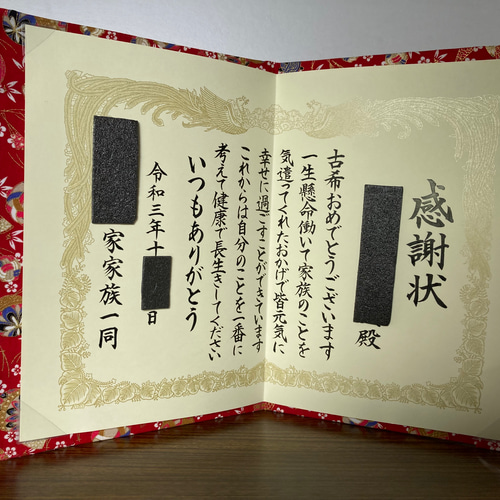 感謝状
殿
古希おめでとうございます
一生懸命働いて家族のことを
気遣ってくれたおかげで皆元気に
幸せに過ごすことができています
これからは自分のことを一番に
考えて健康で長生きしてください
いつもありがとう
令和三年十
日
家家族一同